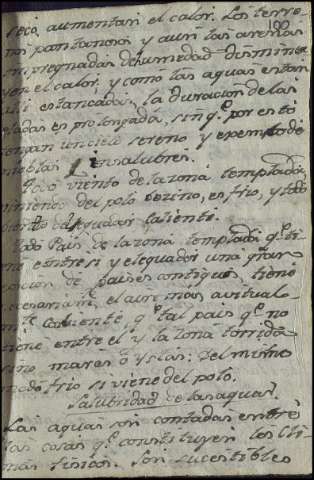 seco, aumentan el calor. Los terre-
100
nos pantanosos y aun las arenas
impregnadas de humedad disminu-
yen el calor. y como las aguas estan
alli estancadas, la duracion de las
eladas es prolongada, sin q.e por esto
tengan un cielo sereno y exento de
nieblas insalubres.
Todo viento de la zona templada
viniendo del polo vezino, es frio, y todo
viento del equador caliente.
Todo Pais de la zona templada q.e ti-
ene entre si y el equador una gran
de paises contiguos, tiene
necesariam.te el aire mas avitual-
m.te caliente q.e tal pais q.e no
tiene entre el y la zona torrida
sino mares ò Yslas: Del mismo
modo frio si viene del polo.
Salubridad de las aguas.
Las aguas son contadas entre
las cosas q.e constituyen los cli-
mas fisicos. Son sucestibles